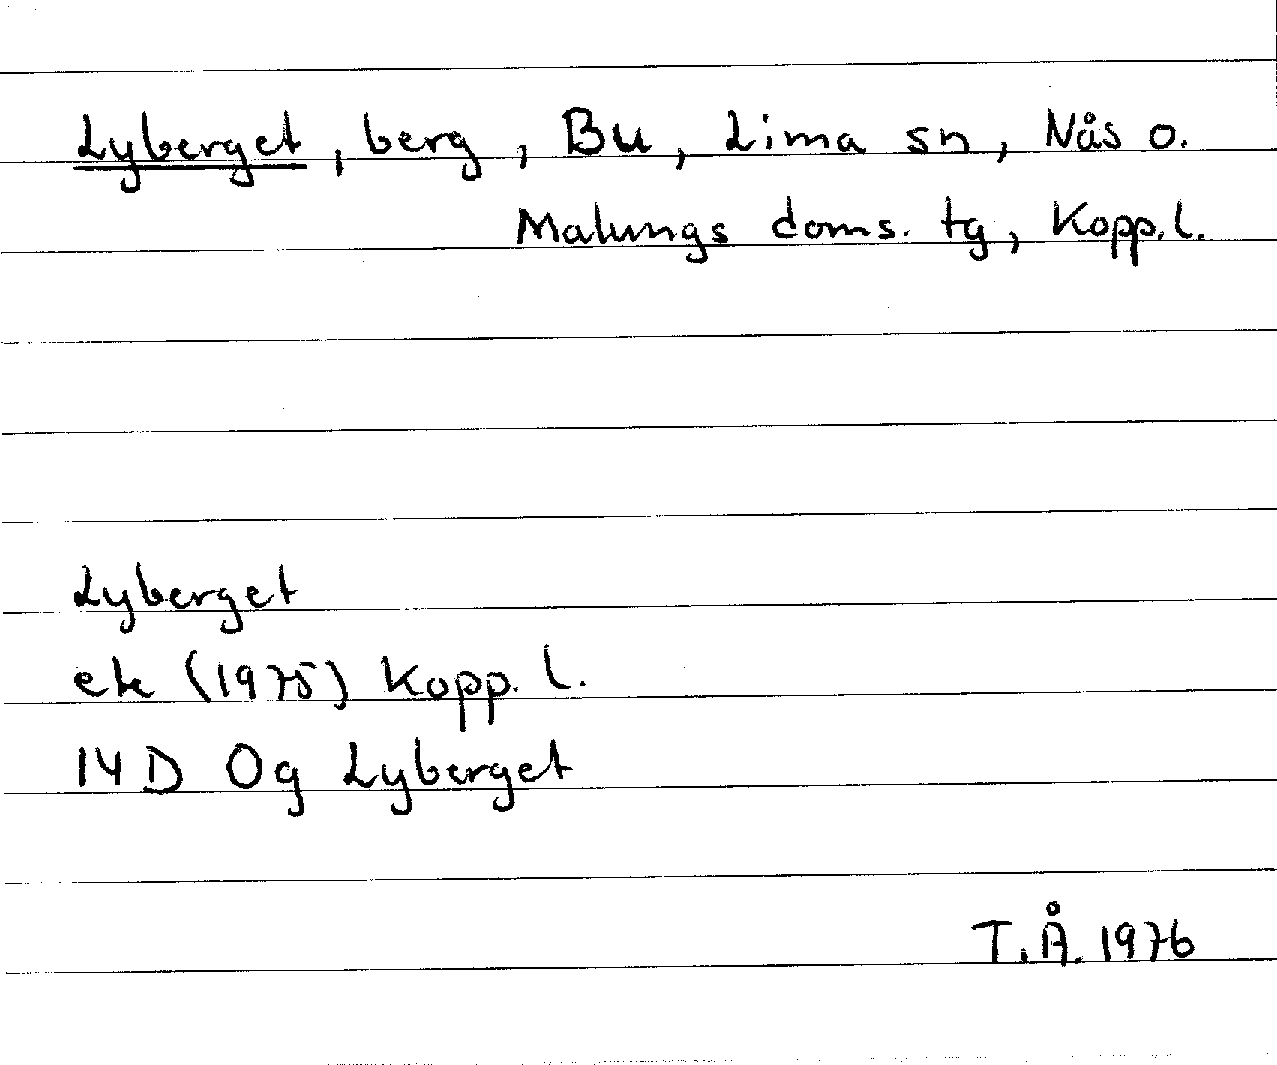 Lyberget, berg, Bu, Lima sn, Nås o.
Malungs doms. tg, Kopp. l.
Lyberget
ek (1975) Kopp. l.
14 D Og Lyberget
T.Å. 1976